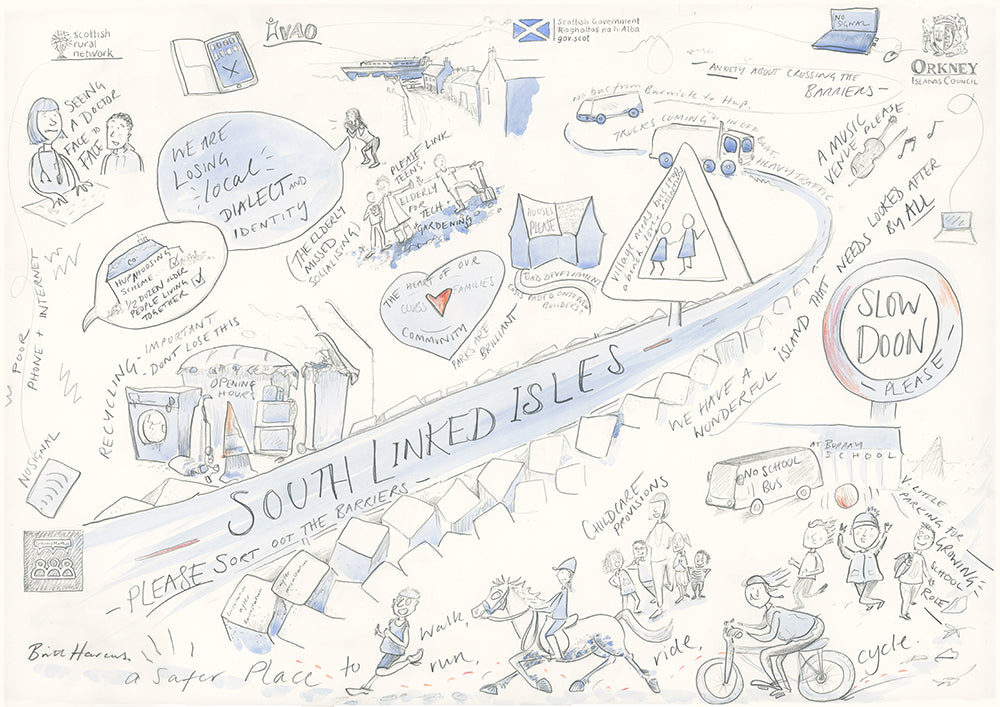 Scottish
rural
network
VAO
Scottish Government
Riaghaltas na h-Alba
gov.scot
NO
SIGNAL
ORKNEY
ISLANDS COUNCIL
SEEING
A DOCTOR
FACE TO
FACE
WE ARE
LOSING
local
DIALECT AND
IDENTITY
ANXIETY ABOUT CROSSING THE
BARRIERS
TRUCKS COMING
HEAVY TRAFFIC
A MUSIC
VENUE PLEASE
PLEASE LINK
TEENS &
ELDERLY
FOR
TECH &
GARDENING
THE ELDERLY
MISSED
SOCIALISING
HOUSES
PLEASE
BAD DEVELOPMENT
Village needs bus stop
THE HEART OF OUR
CLUBS
FAMILIES
COMMUNITY
PARKS ARE
BRILLIANT
HOUSING
SCHEME
1/2 DOZEN OLDER
PEOPLE LIVING
TOGETHER
POOR
PHONE + INTERNET
RECYCLING - IMPORTANT
- DONT LOSE THIS
OPENING
HOURS
NO SIGNAL
SOUTH LINKED ISLES
- PLEASE SORT OOT THE BARRIERS -
WE HAVE A
WONDERFUL
ISLAND THAT NEEDS LOOKED AFTER
BY ALL
SLOW
DOON
PLEASE
AT BURRAY
SCHOOL
NO SCHOOL
BUS
V. LITTLE
PARKING FOR
GROWING
SCHOOL
ROLE
CHILDCARE
PROVISIONS
Britt Harcus
a safer Place to walk, run, ride, cycle.